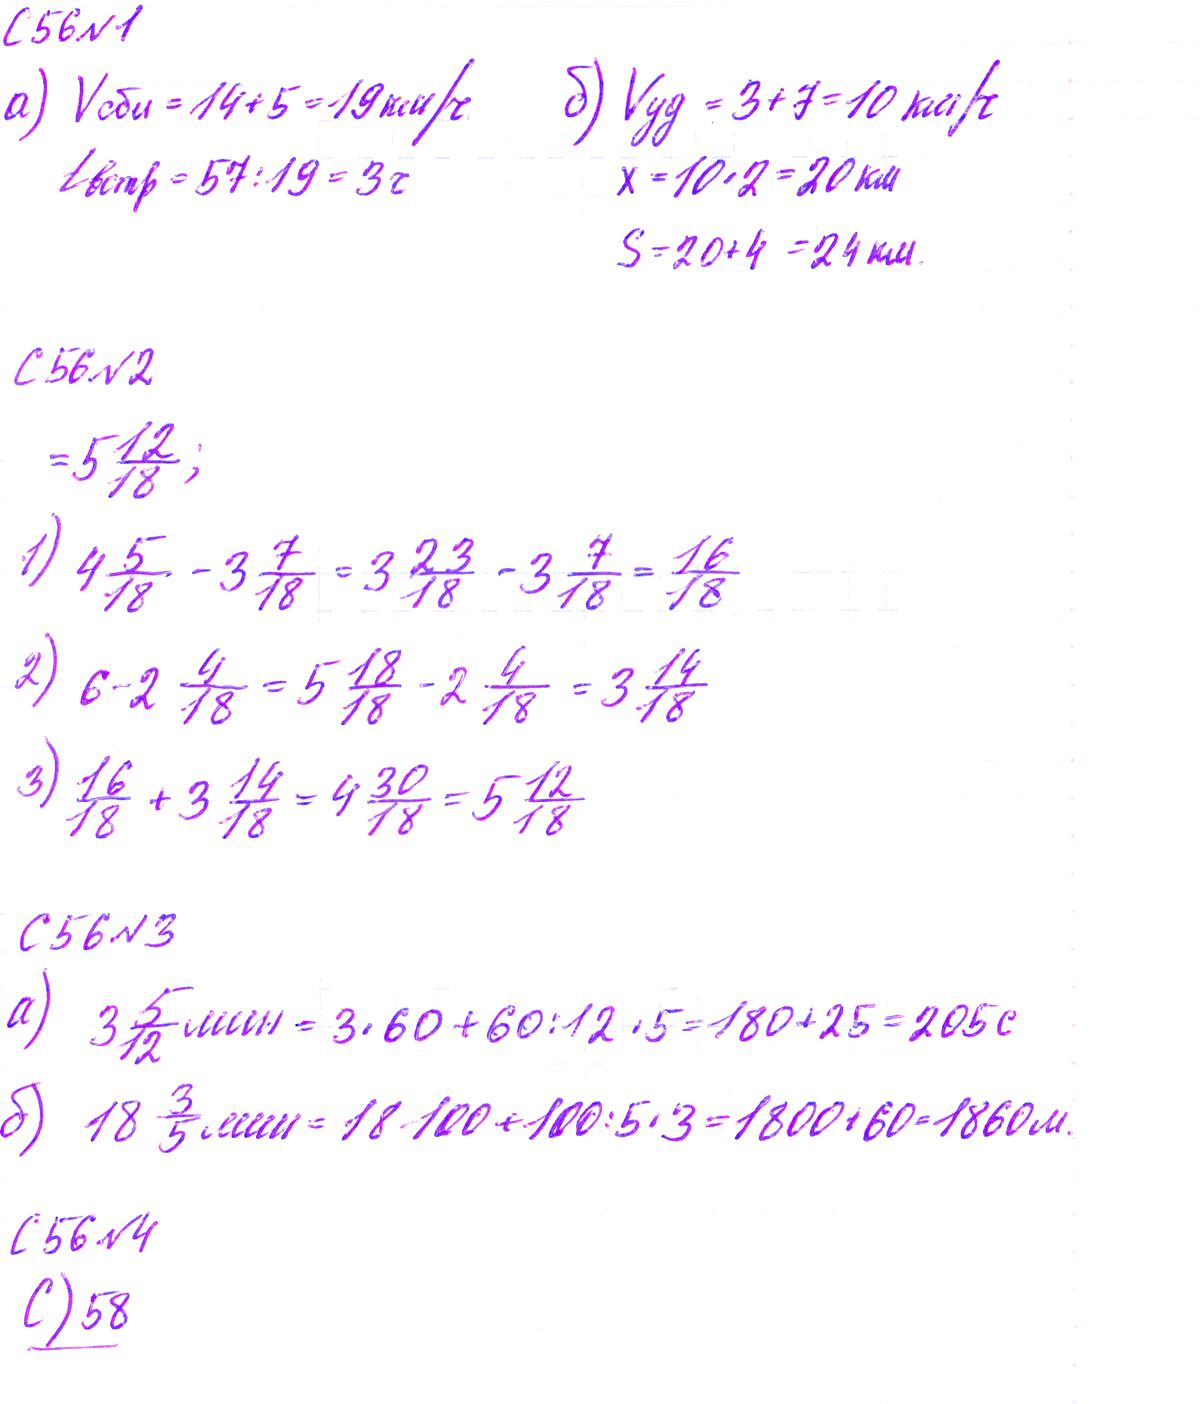 С56№1
а) Vсбл = 14+5 = 19 км/ч
tвстр = 57:19 = 3 ч
б) Vуд = 3+7 = 10 км/ч
x = 10·2 = 20 км
S = 20+4 = 24 км.
С56№2
= 5 12/18 ;
1) 4 5/18 - 3 7/18 = 3 23/18 - 3 7/18 = 16/18
2) 6 - 2 4/18 = 5 18/18 - 2 4/18 = 3 14/18
3) 16/18 + 3 14/18 = 4 30/18 = 5 12/18
С56№3
а) 3 5/12 мин = 3·60 + 60:12·5 = 180+25 = 205 с
б) 18 3/5 мин = 18·100 + 100:5·3 = 1800+60 = 1860 м.
С56№4
С) 58